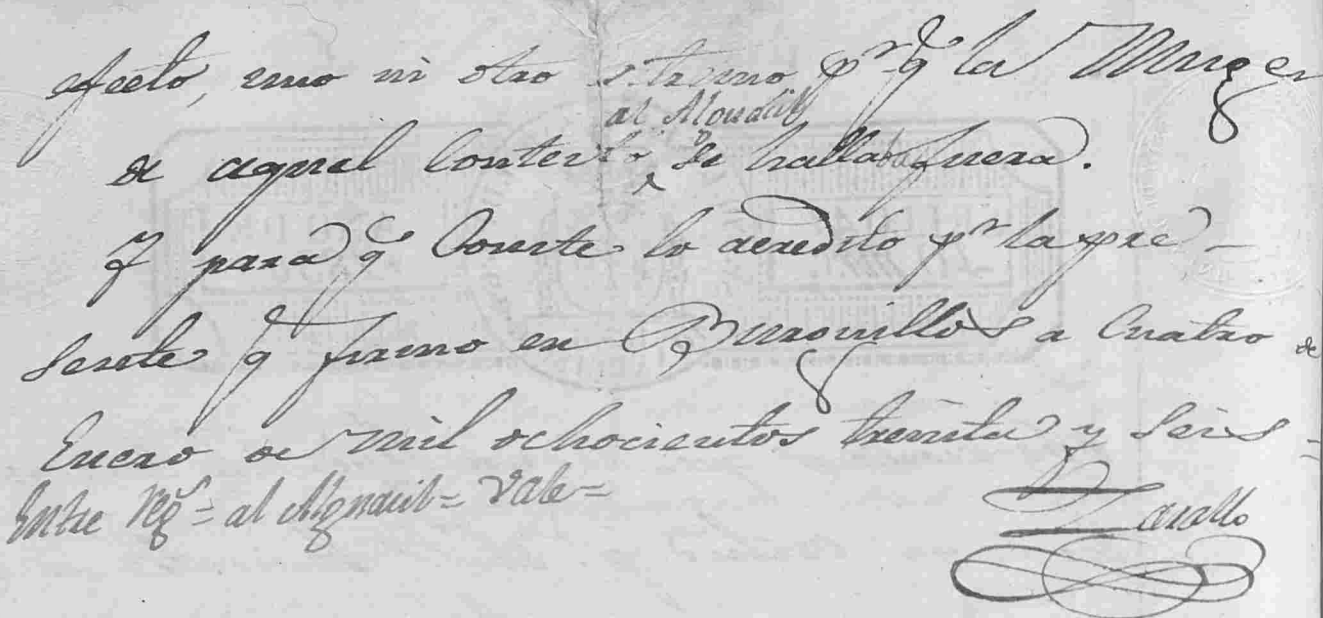 efecto, uno ni otro estremo pr. q.e la Muger
al Alguacil
de aquel Contestó, se hallaba fuera.
Y para q.e Conste lo acredito pr la pre-
sente q.e firmo en Burguillos a Cuatro de
Enero de mil ochocientos treinta y Seis =
Entre regs = al Alguacil = Vale =
Zarallo